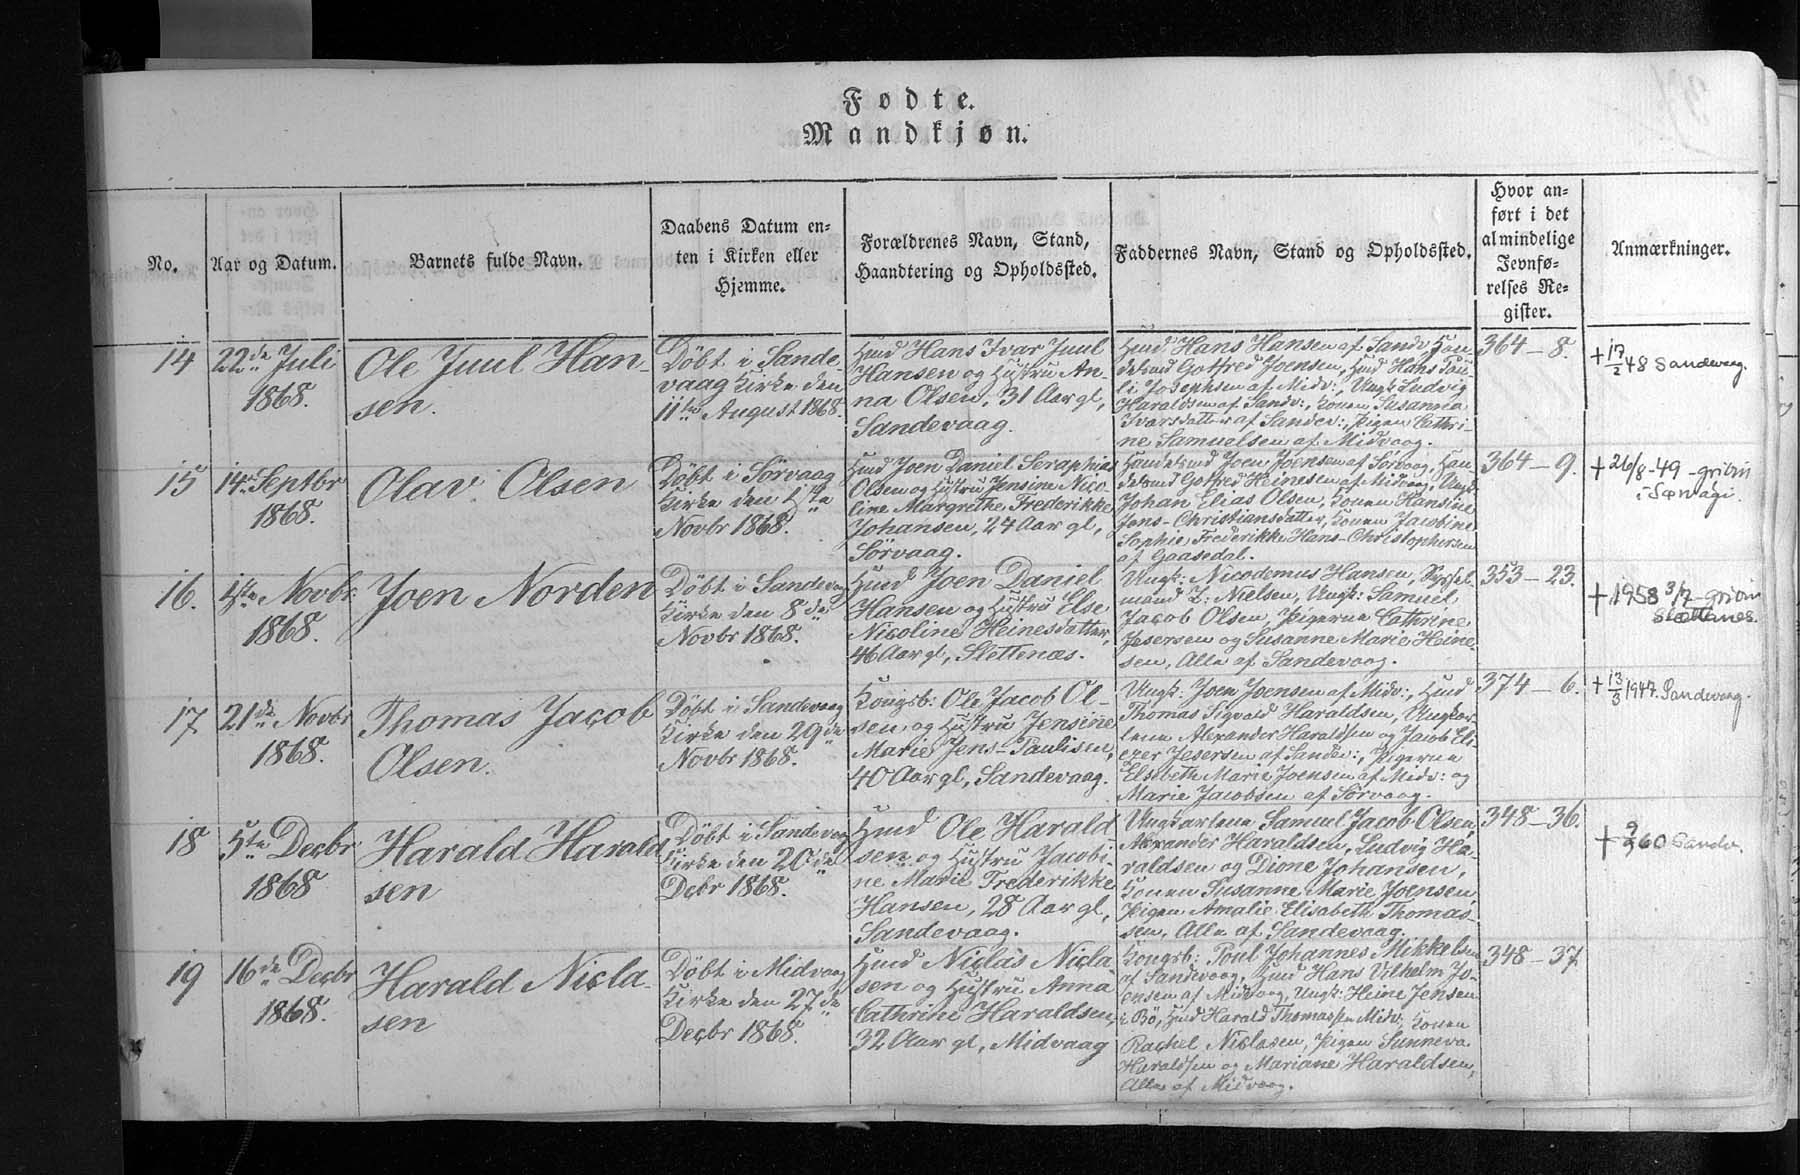 Fødte.
Mandkjøn.
No.
Aar og Datum.
Barnets fulde Navn.
Daabens Datum en-
ten i Kirken eller
Hjemme.
Forældrenes Navn, Stand,
Haandtering og Opholdssted.
Faddernes Navn, Stand og Opholdssted.
Hvor an-
ført i det
almindelige
Jevnfø-
relses Re-
gister.
Anmærkninger.
14
22de Juli
1868.
Ole Juul Han-
sen.
Döbt i Sande-
vaag Kirke den
11te August 1868.
Hmd Hans Ivar Juul
Hansen og Hustru An-
na Olsen, 31 Aar gl,
Sandevaag.
Hmd Hans Hansen af Sandv,
Gotfred Joensen, Hmd Hans Pau-
li Josephsen af Midv:, Ungk: Ludvig
Haraldsen af Sandv:, Konen Susanna
Ivarsdatter af Sandev:, Pigen Cathri-
ne Samuelsen af Midvaag.
364-8.
+ 17/2 48 Sandevaag.
15
14de Septbr
1868.
Olav Olsen
Döbt i Sörvaag
Kirke den 1ste
Novbr 1868.
Hmd Joen Daniel Seraphias
Olsen og Hustru Jensine Nico-
line Margrethe Frederikke
Johansen, 24 Aar gl,
Sörvaag.
Joen Joensen af Sörvaag, Han-
delsmd Gotfred Heinesen af Midvaag, Ungk:
Johan Elias Olsen, Konen Hansine
Jens-Christiansdatter, Konen Jacobine
Sophie Frederikke Hans-Christophersen
af Gaasedal.
364-9.
+ 26/8-49 - grivin
i Sörvági.
16.
1ste Novbr.
1868.
Joen Norden
Döbt i Sandevaag
Kirke den 8de
Novbr 1868.
Hmd Joen Daniel
Hansen og Hustru Else
Nicoline Heinesdatter,
46 Aar gl, Slettenæs.
Ungk: Nicodemus Hansen, Syssel-
mand Z: Nielsen, Ungk: Samuel
Jacob Olsen, Pigerne Cathrine
Jesersen og Susanne Marie Heine-
sen, Alle af Sandevaag.
353-23.
+ 1958 3/7 - grivin
Slættanes.
17
21de Novbr
1868.
Thomas Jacob
Olsen.
Döbt i Sandevaag
Kirke den 29de
Novbr 1868.
Kongsb: Ole Jacob Ol-
sen og Hustru Jensine
Marie Jens-Paulisen,
40 Aar gl, Sandevaag.
Ungk: Joen Joensen af Midv:, Hmd
Thomas Sigvald Haraldsen, Ungkar-
lene Alexander Haraldsen og Jacob Eli-
ezer Jesersen af Sandev:, Pigerne
Elsebeth Marie Joensen af Midv: og
Marie Jacobsen af Sörvaag.
374-6.
+ 13/3 1947. Sandevaag.
18
5te Decbr
1868
Harald Harald
sen
Döbt i Sandevaag
Kirke den 20de
Decbr 1868.
Hmd Ole Harald
sen og Hustru Jacobi-
ne Marie Frederikke
Hansen, 28 Aar gl,
Sandevaag.
Ungkarlene Samuel Jacob Olsen,
Alexander Haraldsen, Ludvig Ha-
raldsen og Dione Johansen,
Konen Susanne Marie Joensen,
Pigen Amalie Elisabeth Thomas-
sen, Alle af Sandevaag.
348-36.
+ 9/9 60 Sandv.
19
16de Decbr
1868.
Harald Nicla-
sen
Döbt i Midvaag
Kirke den 27de
Decbr 1868.
Hmd Niclas Nicla-
sen og Hustru Anna
Cathrine Haraldsen,
32 Aar gl, Midvaag
Kongsb: Poul Johannes Mikkelsen
af Sandevaag, Hmd Hans Vilhelm Jo-
ensen af Midvaag, Ungk: Heine Jensen
i Bö, Hmd Harald Thomassen Midv, Konen
Rachel Niclasen, Pigen Sunneva
Haraldsen og Mariane Haraldsen,
Alle af Midvaag.
348-37